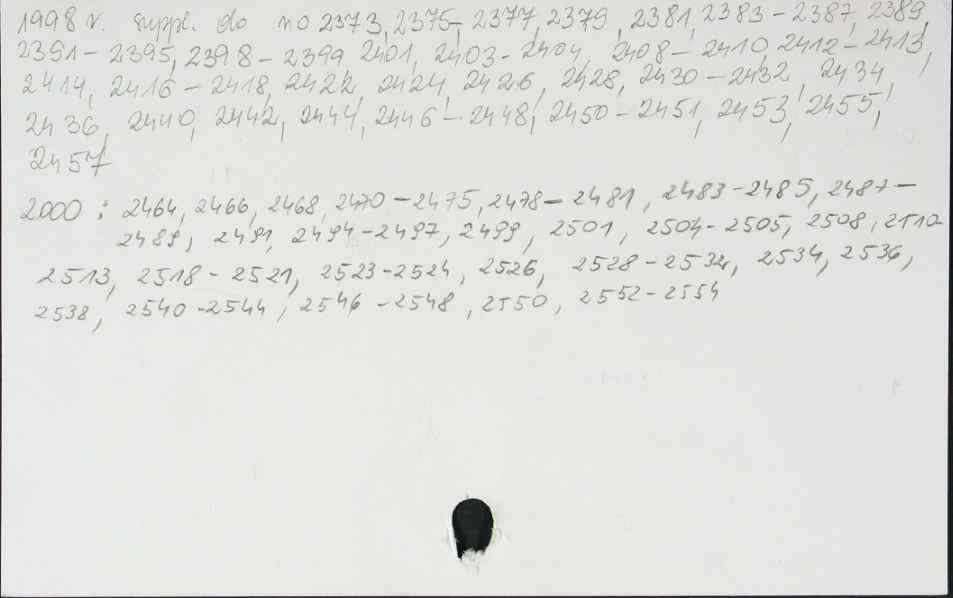 1998 r. suppl. do no 2373, 2375, 2377, 2379, 2381, 2383 - 2387, 2389,
2391 - 2395, 2398 - 2399 2401, 2403 - 2404, 2408 - 2410, 2412 - 2413,
2414, 2416 - 2418, 2422, 2424, 2426, 2428, 2430 - 2432, 2434,
2436, 2440, 2442, 2444, 2446 - 2448, 2450 - 2451, 2453, 2455,
2457
2000 : 2464, 2466, 2468, 2470 - 2475, 2478 - 2481, 2483 - 2485, 2487 -
2489, 2491, 2494 - 2497, 2499, 2501, 2504 - 2505, 2508, 2510-
2513, 2518 - 2521, 2523 - 2524, 2526, 2528 - 2532, 2534, 2536,
2538, 2540 - 2544, 2546 - 2548, 2550, 2552 - 2554